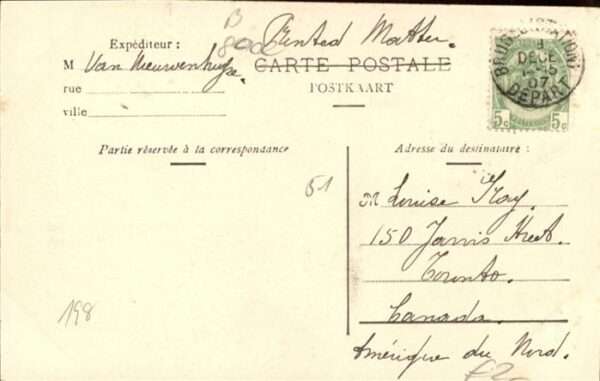 B
800c
Printed Matter.
Expéditeur :
M Van Nieuwenhuyse.
CARTE POSTALE
rue
POSTKAART
ville
DECE
07
DÉPART
5c 5c
Partie réservée à la correspondance
Adresse du destinataire :
51
M Louise Kay.
150 Jarvis Street.
Toronto.
Canada.
Amérique du Nord.
198
£2-